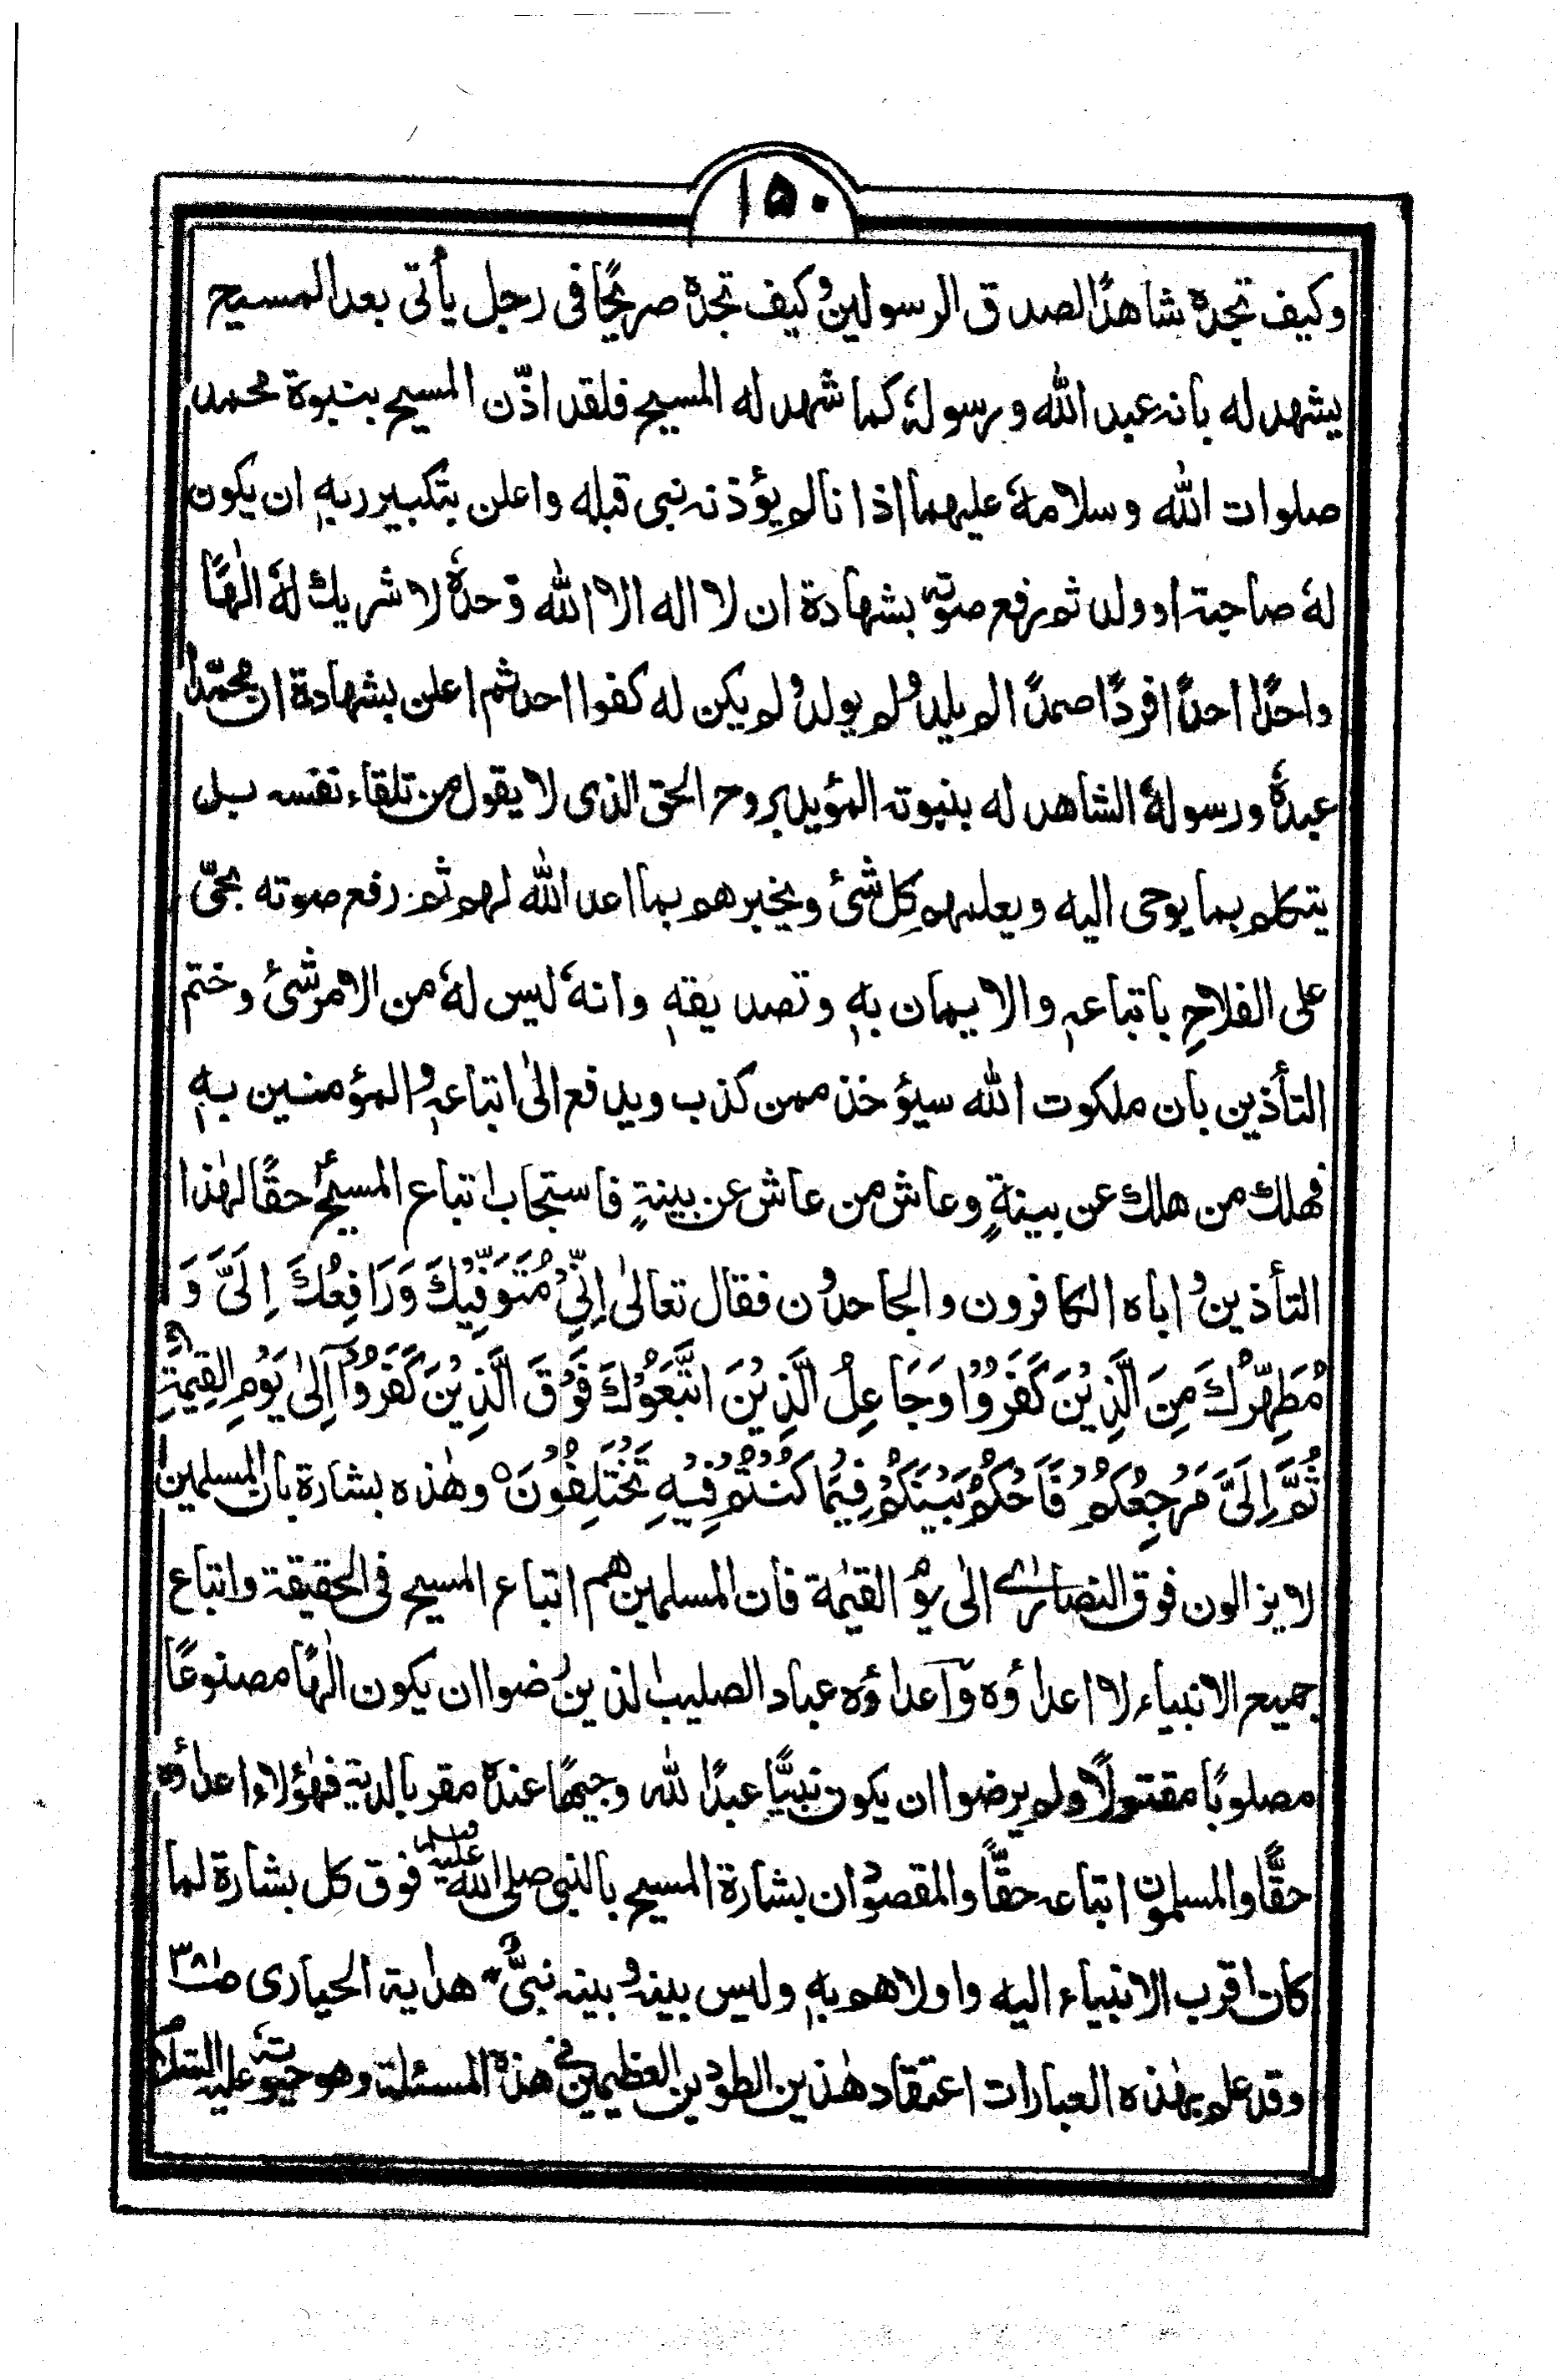 ۱۵۰
وكيف تجدہ شاهدًا لصدق الرسولين وكيف تجدہ صريحًا في رجل يأتى بعد المسيح
يشهد له بانہ عبد الله ورسولهٗ كما شهد له المسيح فلقد اذّن المسيح بنبوة محمد
صلوات الله وسلامهٗ عليهما اذانا لم يؤذنہ نبى قبله واعلن بتكبير ربهٖ ان يكون
لهٗ صاحبة او ولد ثم رفع صوتہ بشهادة ان لا اله الا الله وحدہٗ لا شريك لهٗ الٰهًا
واحدًا احدًا فردًا صمدًا لم يلد ولم يولد ولم يكن له كفوا احد ثم اعلن بشهادة ان محمّدا
عبدہٗ ورسولهٗ الشاهد له بنبوتہ المؤيد بروح الحق الذى لا يقول من تلقاء نفسہ بل
يتكلم بما يوحى اليه ويعلمهم كل شئ ويخبرهم بما اعد الله لهم ثم رفع صوته بحىّ
على الفلاحِ باتباعہٖ والايمان بهٖ وتصديقهٖ وانهٗ ليس لهٗ من الامر شئ وختم
التأذين بان ملكوت الله سيؤخذ ممن كذب ويدفع الىٰ اتباعہٖ والمؤمنين بهٖ
فهلك من هلك عن بينةٍ وعاش من عاش عن بينةٍ فاستجاب اتباع المسيحؑ حقًا لهٰذا
التأذين واباه الكافرون والجاحدون فقال تعالىٰ اِنِّىْ مُتَوَفِّيْكَ وَرَافِعُكَ اِلَىَّ وَ
مُطَهِّرُكَ مِنَ الَّذِيْنَ كَفَرُوْا وَجَاعِلُ الَّذِيْنَ اتَّبَعُوْكَ فَوْقَ الَّذِيْنَ كَفَرُوْآ اِلىٰ يَوْمِ الْقِيٰمَةِ
ثُمَّ اِلَىَّ مَرْجِعُكُمْ فَاَحْكُمُ بَيْنَكُمْ فِيْمَا كُنْتُمْ فِيْهِ تَخْتَلِفُوْنَ ۝ وهٰذہ بشارة بان المسلمين
لا يزالون فوق النصارىٰ الىٰ يوم القيٰمة فان المسلمين هم اتباع المسيح فى الحقيقة واتباع
جميع الانبياء لا اعداؤہ وآعداؤہ عباد الصليب الذين رضوا ان يكون الٰهًا مصنوعًا
مصلوبًا مقتولًا ولم يرضوا ان يكون نبيًّا عبدًا لله وجيهًا عندہٗ مقربا لديہ فهٰؤلاء اعداؤہ
حقًّا والمسلمون اتباعہ حقًّا والمقصود ان بشارة المسيح بالنبى صلى الله عليہ وسلم فوق كل بشارة لما
كان اقرب الانبياء اليه واولاهم بهٖ وليس بينہ وبينہ نبىٌّ هداية الحيارى صـ ۳۸۱
وقد علم بهٰذہ العبارات اعتقاد هٰذين الطودين العظيمين فى هذہ المسئلة وهو حيٰوتہٗ عليہ السلام